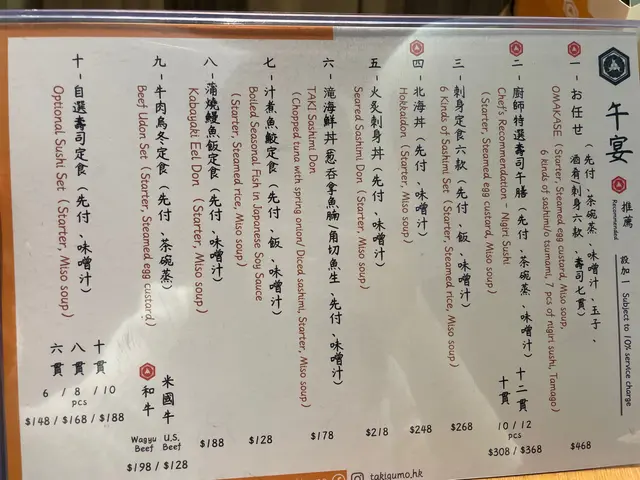 午宴
推薦
Recommended
設加 1 Subject to 10% service charge
一、お任せ (先付、茶碗蒸、味噌汁、玉子、
酒肴刺身六款、壽司七貫)
OMAKASE (Starter, Steamed egg custard, Miso soup,
6 kinds of sashimi/o tsumami, 7 pcs of nigiri sushi, Tamago)
$468
二、廚師特選壽司午膳 (先付、茶碗蒸、味噌汁)
Chef's Recommendation - Nigiri Sushi
(Starter, Steamed egg custard, Miso soup)
十貫 十二貫
10 / 12
pcs
$308 / $368
三、刺身定食六款 (先付、飯、味噌汁)
6 Kinds of Sashimi Set (Starter, Steamed rice, Miso soup)
$268
四、北海丼 (先付、味噌汁)
Hokkaidon (Starter, Miso soup)
$248
五、火炙刺身丼 (先付、味噌汁)
Seared Sashimi Don (Starter, Miso soup)
$218
六、滝海鮮丼 葱吞拿魚腩/角切魚生 (先付、味噌汁)
TAKI Sashimi Don
(Chopped tuna with spring onion/ Diced sashimi, Starter, Miso soup)
$178
七、汁煮魚鮫定食 (先付、飯、味噌汁)
Boiled Seasonal Fish in Japanese Soy Sauce
(Starter, Steamed rice, Miso soup)
$128
八、蒲燒鰻魚飯定食 (先付、味噌汁)
Kabayaki Eel Don (Starter, Miso soup)
$188
九、牛肉烏冬定食 (先付、茶碗蒸)
Beef Udon Set (Starter, Steamed egg custard)
和牛 米國牛
Wagyu Beef U.S. Beef
$198 / $128
十、自選壽司定食 (先付、味噌汁)
Optional Sushi Set (Starter, Miso soup)
六貫 八貫 十貫
6 / 8 / 10
pcs
$148 / $168 / $188
takigumo.hk